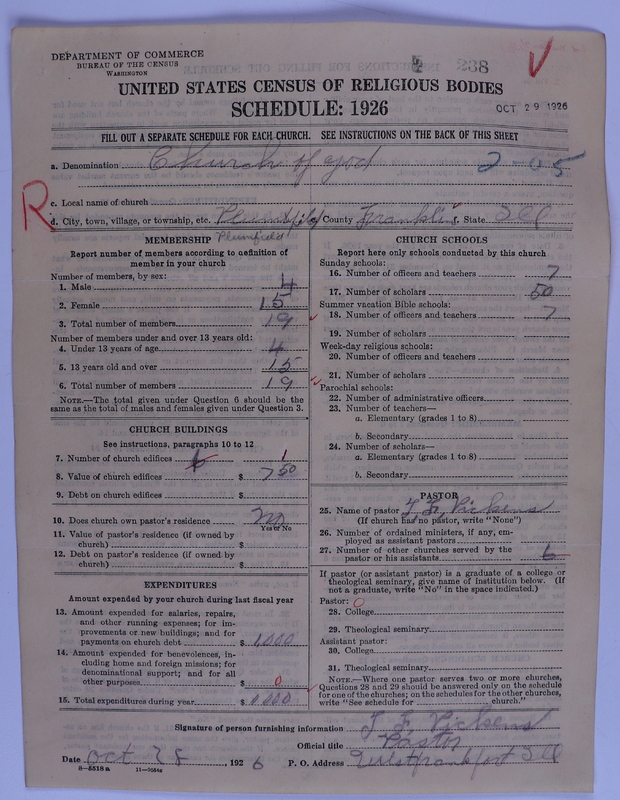 DEPARTMENT OF COMMERCE
BUREAU OF THE CENSUS
WASHINGTON
238
UNITED STATES CENSUS OF RELIGIOUS BODIES
SCHEDULE: 1926
OCT 29 1926
FILL OUT A SEPARATE SCHEDULE FOR EACH CHURCH. SEE INSTRUCTIONS ON THE BACK OF THIS SHEET
a. Denomination Church of god 2-05
c. Local name of church
R
d. City, town, village, or township, etc. Plumfield County Franklin f. State Ill
Plumfield
MEMBERSHIP
Report number of members according to definition of member in your church
Number of members, by sex:
1. Male 4
2. Female 15
3. Total number of members 19
Number of members under and over 13 years old:
4. Under 13 years of age 4
5. 13 years old and over 15
6. Total number of members 19
NOTE.—The total given under Question 6 should be
same as the total of males and females given under Question 3.
CHURCH BUILDINGS
See instructions, paragraphs 10 to 12
7. Number of church edifices 6 1
8. Value of church edifices $ 750
9. Debt on church edifices $
10. Does church own pastor's residence no
Yes or No
11. Value of pastor's residence (if owned by
church) $
12. Debt on pastor's residence (if owned by
church) $
EXPENDITURES
Amount expended by your church during last fiscal year
13. Amount expended for salaries, repairs,
and other running expenses; for im-
provements or new buildings; and for
payments on church debt $ 1,000
14. Amount expended for benevolences, in-
cluding home and foreign missions; for
denominational support; and for all
other purposes $ 0
15. Total expenditures during year $ 1000
CHURCH SCHOOLS
Report here only schools conducted by this church
Sunday schools:
16. Number of officers and teachers 7
17. Number of scholars 50
Summer vacation Bible schools:
18. Number of officers and teachers 7
19. Number of scholars
Week-day religious schools:
20. Number of officers and teachers
21. Number of scholars
Parochial schools:
22. Number of administrative officers
23. Number of teachers—
a. Elementary (grades 1 to 8)
b. Secondary
24. Number of scholars—
a. Elementary (grades 1 to 8)
b. Secondary
PASTOR
25. Name of pastor T. F. Pickens
(If church has no pastor, write "None")
26. Number of ordained ministers, if any, em-
ployed as assistant pastors
27. Number of other churches served by the
pastor or his assistants 6
If pastor (or assistant pastor) is a graduate of a college or
theological seminary, give name of institution below. (If
not a graduate, write "No" in the space indicated.)
Pastor: 0
28. College
29. Theological seminary
Assistant pastor:
30. College
31. Theological seminary
NOTE.—Where one pastor serves two or more churches,
Questions 28 and 29 should be answered only on the schedule
for one of the churches; on the schedules for the other churches,
write "See schedule for church."
Signature of person furnishing information T. F. Pickens
Official title Pastor
Date Oct 28, 1926 P. O. Address West frankfort Ill
8—5518 a